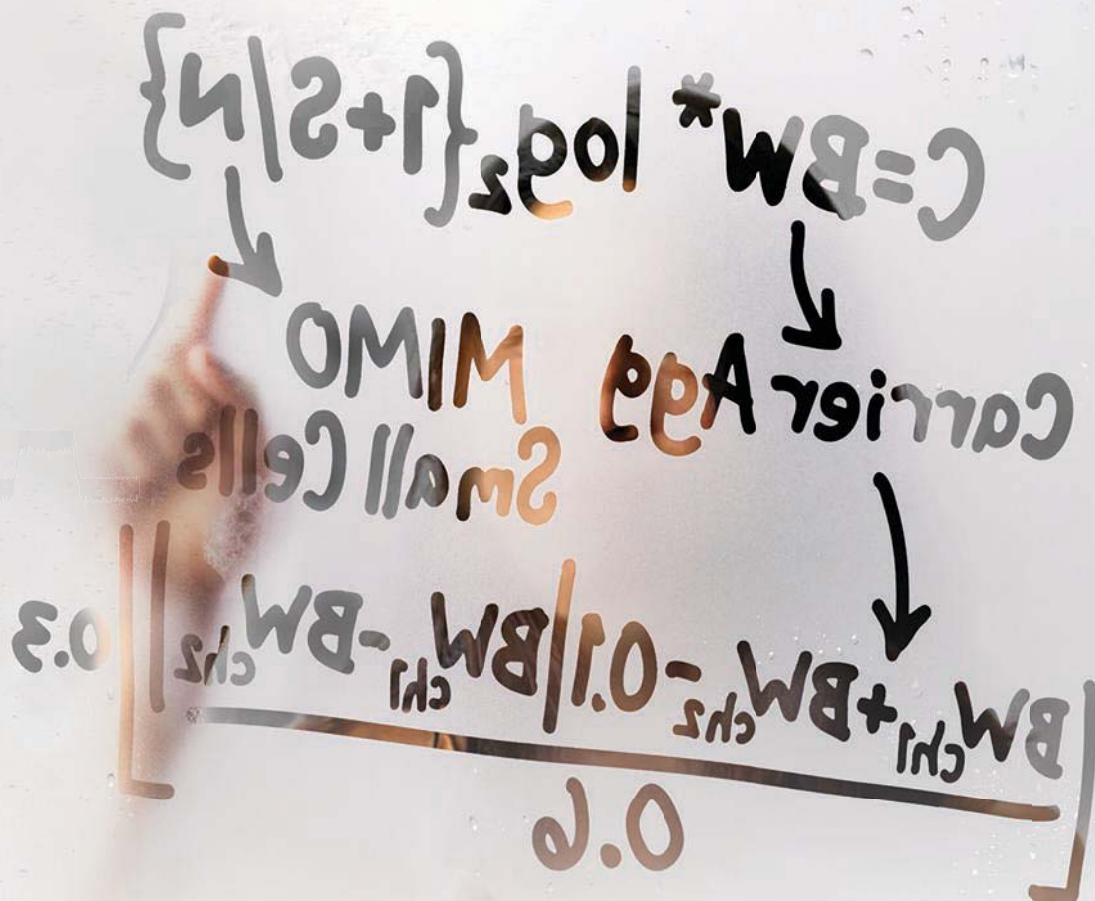 C=BW* log₂{1+S/N}
Carrier Agg MIMO
Small Cells
[BW_ch1+BW_ch2-0.1|BW_ch1-BW_ch2|
0.6
] 0.3